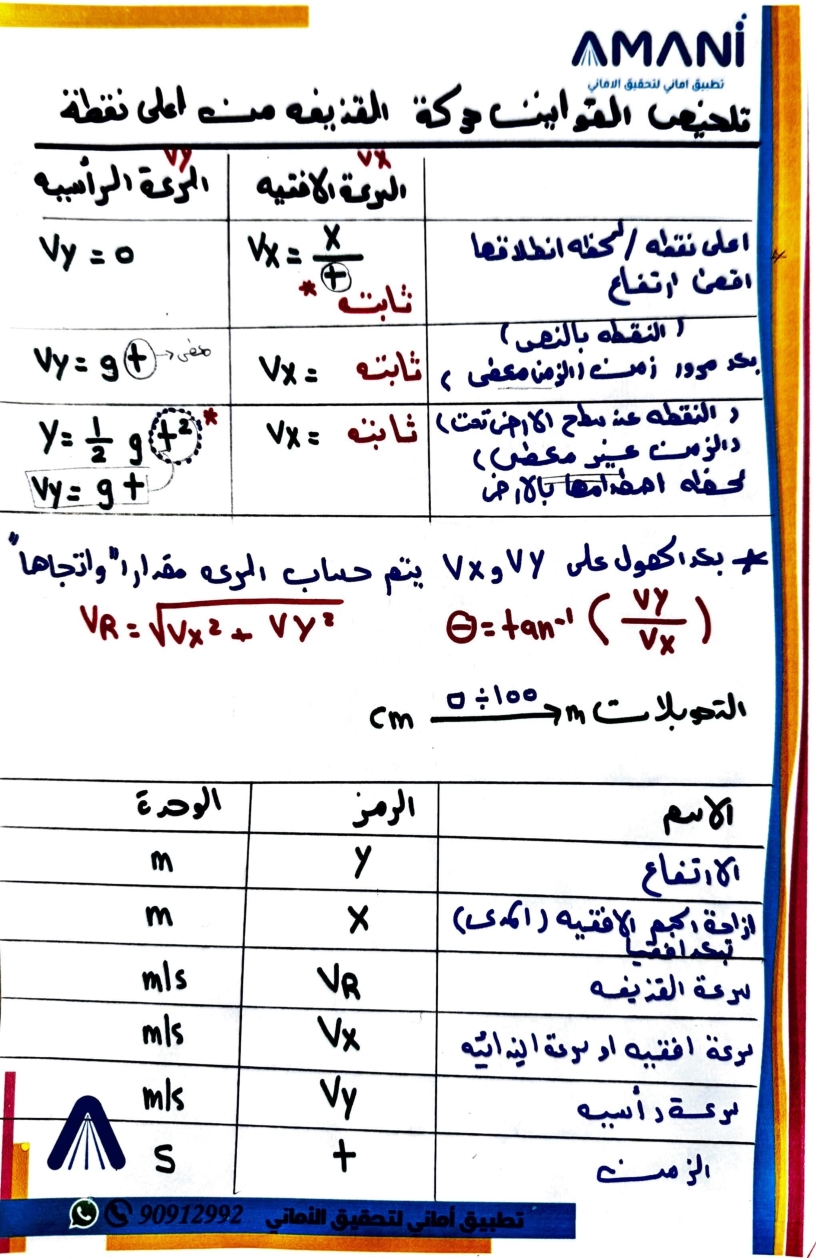 AMANi
تطبيق اماني لتحقيق الاماني
تلخيص القوانين حركة القذيفه من اعلى نقطة
VX
السرعة الافقيه
VY
السرعة الرأسيه
اعلى نقطه / لحظه انطلاقها
اقصى ارتفاع
Vx = X / t
ثابته *
Vy = 0
(النقطه بالنص)
بعد مرور زمن (الزمن معطى)
Vx = ثابته
Vy = g t → معطى
(النقطه عند سطح الارض تحت)
(الزمن غير معطى)
لحظه اصطدامها بالارض
Vx = ثابته
Y = 1/2 g t² *
Vy = g t
* بعد الحصول على VY و Vx يتم حساب السرعه مقدارا" واتجاها"
VR = √Vx² + VY²
Θ = tan⁻¹ (VY / Vx)
التحويلات cm □÷100 → m
الاسم الرمز الوحدة
الارتفاع Y m
ازاحة الجسم الافقيه (المدى) X m
تبعد افقيا
سرعة القذيفه VR m/s
سرعة افقيه او سرعة ابتدائيه Vx m/s
سرعة رأسيه Vy m/s
الزمن t S
90912992 تطبيق أماني لتحقيق الأماني